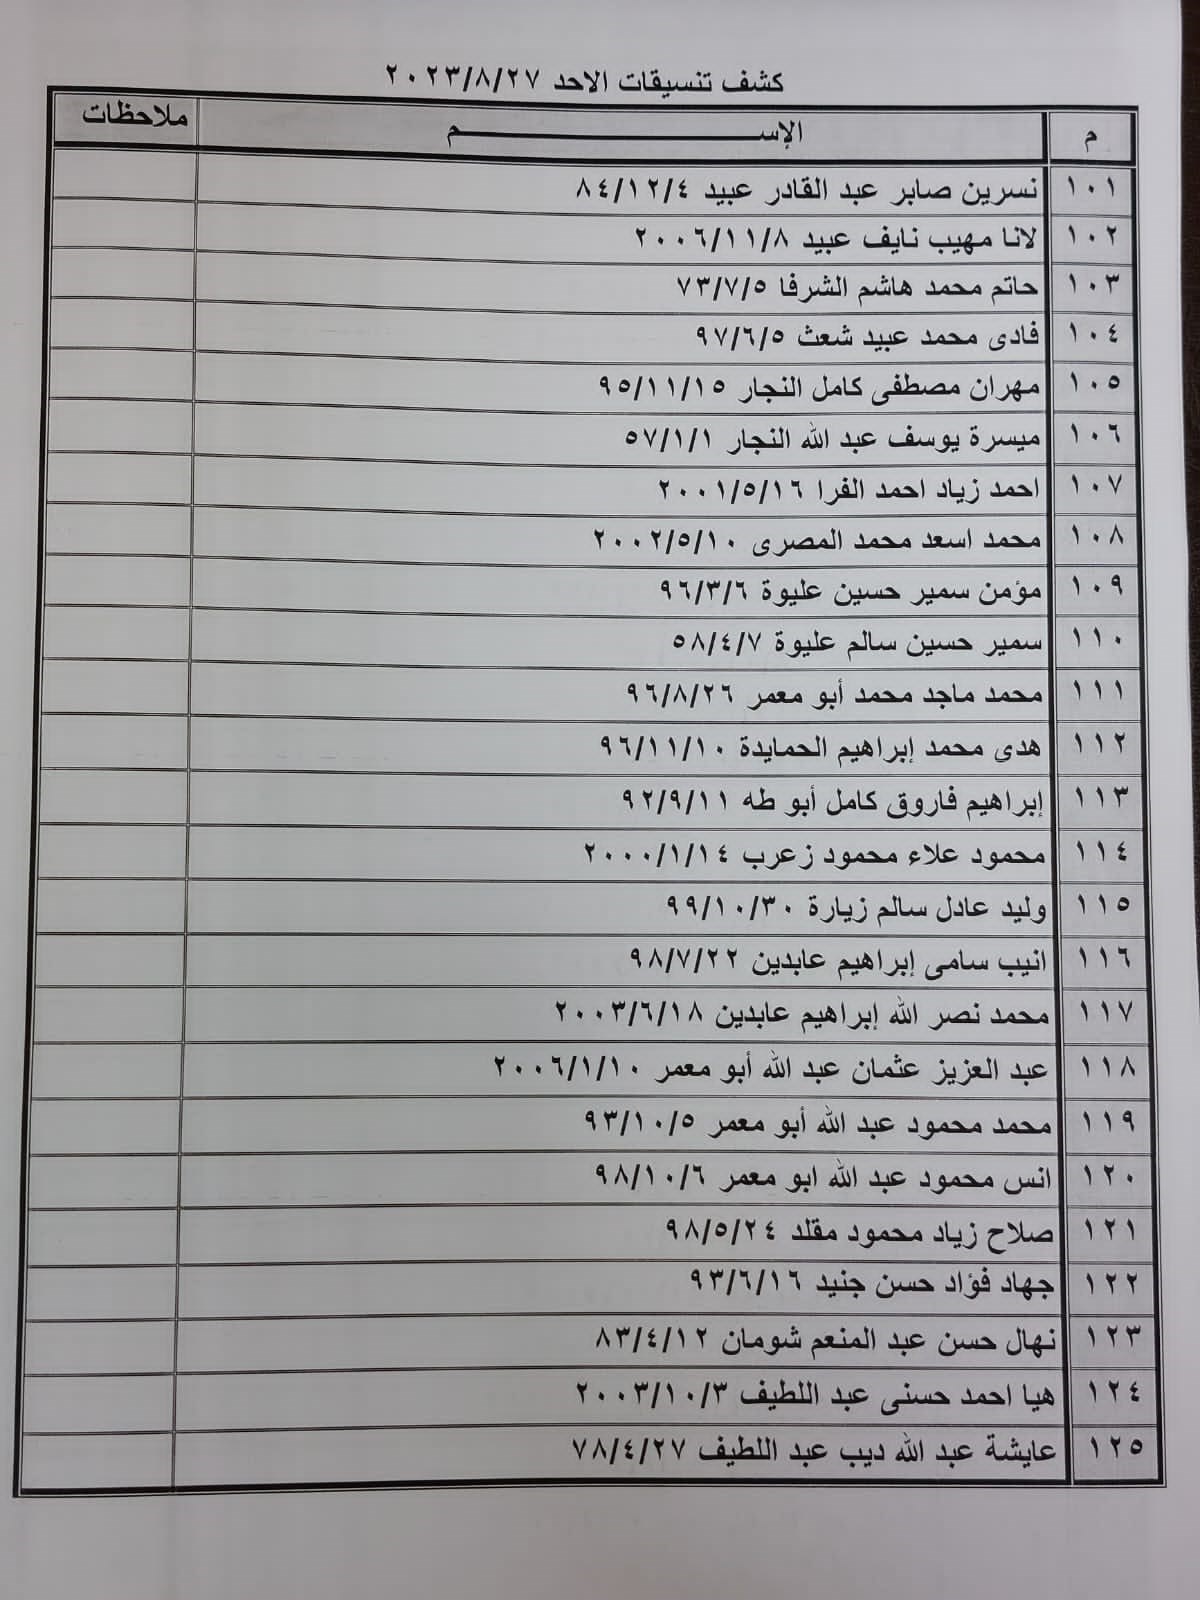 كشف تنسيقات الاحد ٢٠٢٣/٨/٢٧
م الإســـــــــم ملاحظات
١٠١ نسرين صابر عبد القادر عبيد ٨٤/١٢/٤
١٠٢ لانا مهيب نايف عبيد ٢٠٠٦/١١/٨
١٠٣ حاتم محمد هاشم الشرفا ٧٣/٧/٥
١٠٤ فادى محمد عبيد شعث ٩٧/٦/٥
١٠٥ مهران مصطفى كامل النجار ٩٥/١١/١٥
١٠٦ ميسرة يوسف عبد الله النجار ٥٧/١/١
١٠٧ احمد زياد احمد الفرا ٢٠٠١/٥/١٦
١٠٨ محمد اسعد محمد المصرى ٢٠٠٢/٥/١٠
١٠٩ مؤمن سمير حسين عليوة ٩٦/٣/٦
١١٠ سمير حسين سالم عليوة ٥٨/٤/٧
١١١ محمد ماجد محمد أبو معمر ٩٦/٨/٢٦
١١٢ هدى محمد إبراهيم الحمايدة ٩٦/١١/١٠
١١٣ إبراهيم فاروق كامل أبو طه ٩٢/٩/١١
١١٤ محمود علاء محمود زعرب ٢٠٠٠/١/١٤
١١٥ وليد عادل سالم زيارة ٩٩/١٠/٣٠
١١٦ انيب سامى إبراهيم عابدين ٩٨/٧/٢٢
١١٧ محمد نصر الله إبراهيم عابدين ٢٠٠٣/٦/١٨
١١٨ عبد العزيز عثمان عبد الله أبو معمر ٢٠٠٦/١/١٠
١١٩ محمد محمود عبد الله أبو معمر ٩٣/١٠/٥
١٢٠ انس محمود عبد الله ابو معمر ٩٨/١٠/٦
١٢١ صلاح زياد محمود مقلد ٩٨/٥/٢٤
١٢٢ جهاد فؤاد حسن جنيد ٩٣/٦/١٦
١٢٣ نهال حسن عبد المنعم شومان ٨٣/٤/١٢
١٢٤ هيا احمد حسنى عبد اللطيف ٢٠٠٣/١٠/٣
١٢٥ عايشة عبد الله ديب عبد اللطيف ٧٨/٤/٢٧